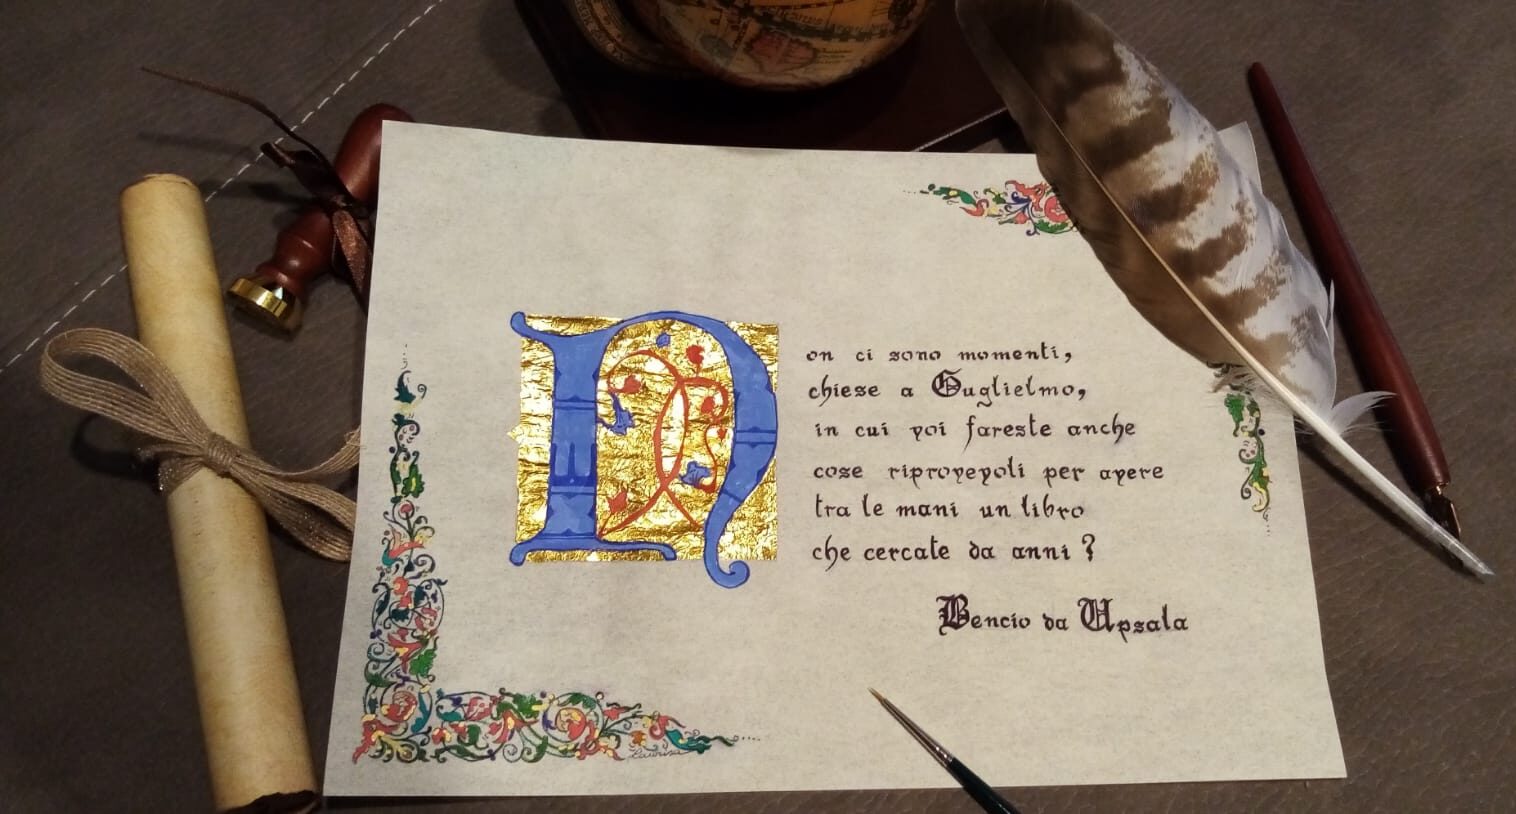 Non ci sono momenti,
chiese a Guglielmo,
in cui voi fareste anche
cose riprovevoli per avere
tra le mani un libro
che cercate da anni ?
Bencio da Upsala